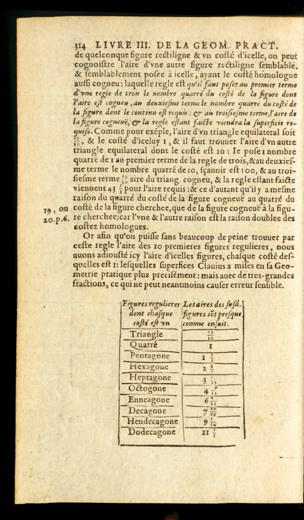 314 LIVRE III. DE LA GEOM. PRACT.
de quelconque figure rectiligne & vn costé d'icelle, on peut
cognoistre l'aire d'vne autre figure rectiligne semblable,
& semblablement posee à icelle, ayant le costé homologue
aussi cogneu: laquelle regle est qu'il faut poser au premier terme
d'vne regle de trois le nombre quarré du costé de la figure dont
l'aire est cogneu, au deuxiesme terme le nombre quarré du costé de
la figure dont le contenu est requis: & au troisiesme terme l'aire de
la figure cogneuë, & la regle estant faicte viendra la superficie re-
quise. Comme pour exẽple, l'aire d'vn triangle equilateral soit
& le costé d'iceluy 1, & il faut trouuer l'aire d'vn autre
triangle equilateral dont le costé est 10: Ie pose 1 nombre
quarré de 1 au premier terme de la regle de trois, & au deuxies-
me terme le nombre quarré de 10, sçauoir est 100, & au troi-
siesme terme aire du triang. cogneu, & la regle estant faicte
viennent 43 pour l'aire requis: & ce d'autant qu'il y a mesme
raison du quarré du costé de la figure cogneuë au quarré du
19, ou costé de la figure cherchee, que de la figure cogneuë à la figu-
20.p.6. re cherchee; car l'vne & l'autre raison est la raison doublee des
costez homologues.
Or afin qu'on puisse sans beaucoup de peine trouuer par
ceste regle l'aire des 10 premieres figures regulieres, nous
nous adiousté icy l'aire d'icelles figures, chasque costé des-
quelles est 1: lesquelles superfices Clauius a miles en sa Geo-
metrie pratique plus precisément: mais auec de tres-grandes
fractions, ce qui ne peut neantmoins causer erreur sensible.
Figures regulieres Les aires des susd.
dont chasque figures sõt presque
costé est vn comme ensuit.
Triangle
Quarré 1
Pentagone 1
Hexagone 2
Heptagone 3
Octogone 4
Enneagone 6
Decagone 7
Hendecagone 9
Dodecagone 11